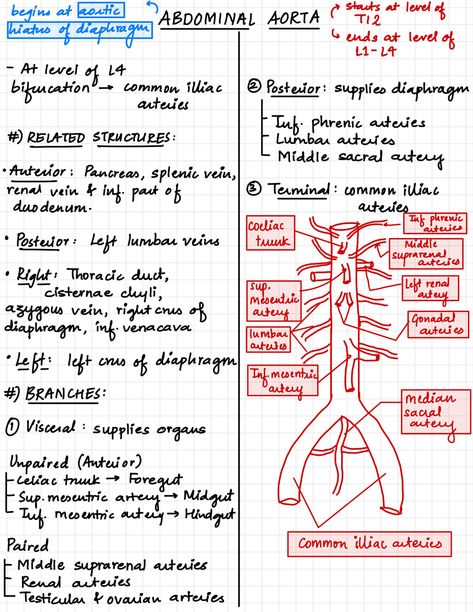 begins at aortic
hiatus of diaphragm
ABDOMINAL AORTA
starts at level of
T12
ends at level of
L1-L4
- At level of L4
bifurcation → common iliac
arteries
#) RELATED STRUCTURES:
• Anterior: Pancreas, splenic vein,
renal vein & inf. part of
duodenum.
• Posterior: Left lumbar veins
• Right: Thoracic duct,
cisternae chyli,
azygous vein, right crus of
diaphragm, inf. venacava
• Left: left crus of diaphragm
#) BRANCHES:
① Visceral: supplies organs
Unpaired (Anterior)
Celiac trunk → Foregut
Sup. mesentric artery → Midgut
Inf. mesentric artery → Hindgut
Paired
Middle suprarenal arteries
Renal arteries
Testicular & ovarian arteries
② Posterior: supplies diaphragm
Inf. phrenic arteries
Lumbar arteries
Middle sacral artery
③ Terminal: common iliac
arteries
Coeliac
trunk
Sup.
mesentric
artery
lumbar
arteries
Inf mesentric
artery
Inf phrenic
arteries
Middle
suprarenal
arteries
Left renal
artery
Gonadal
arteries
median
sacral
artery
Common iliac arteries